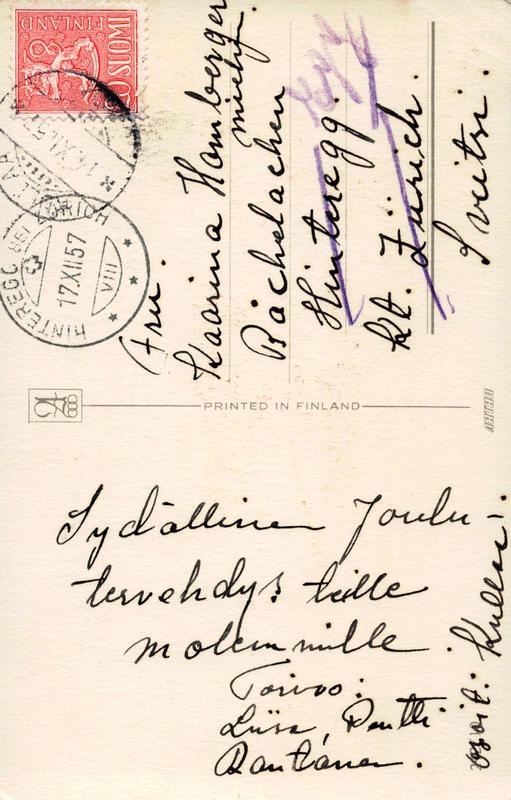 SUOMI
FINLAND
8
HINTEREGG BEI ZÜRICH
17.XII.57
VIII
Fru.
Kaarina Homberger
Bachelachen
Hinteregg.
Egg
Kt. Zürich.
Sveitsi.
PRINTED IN FINLAND
Sydällinen Joulu-
tervehdys teille
molemmille.
Toivoo:
Liisa, Pentti
Rantanen.
osoit. Kullaa.